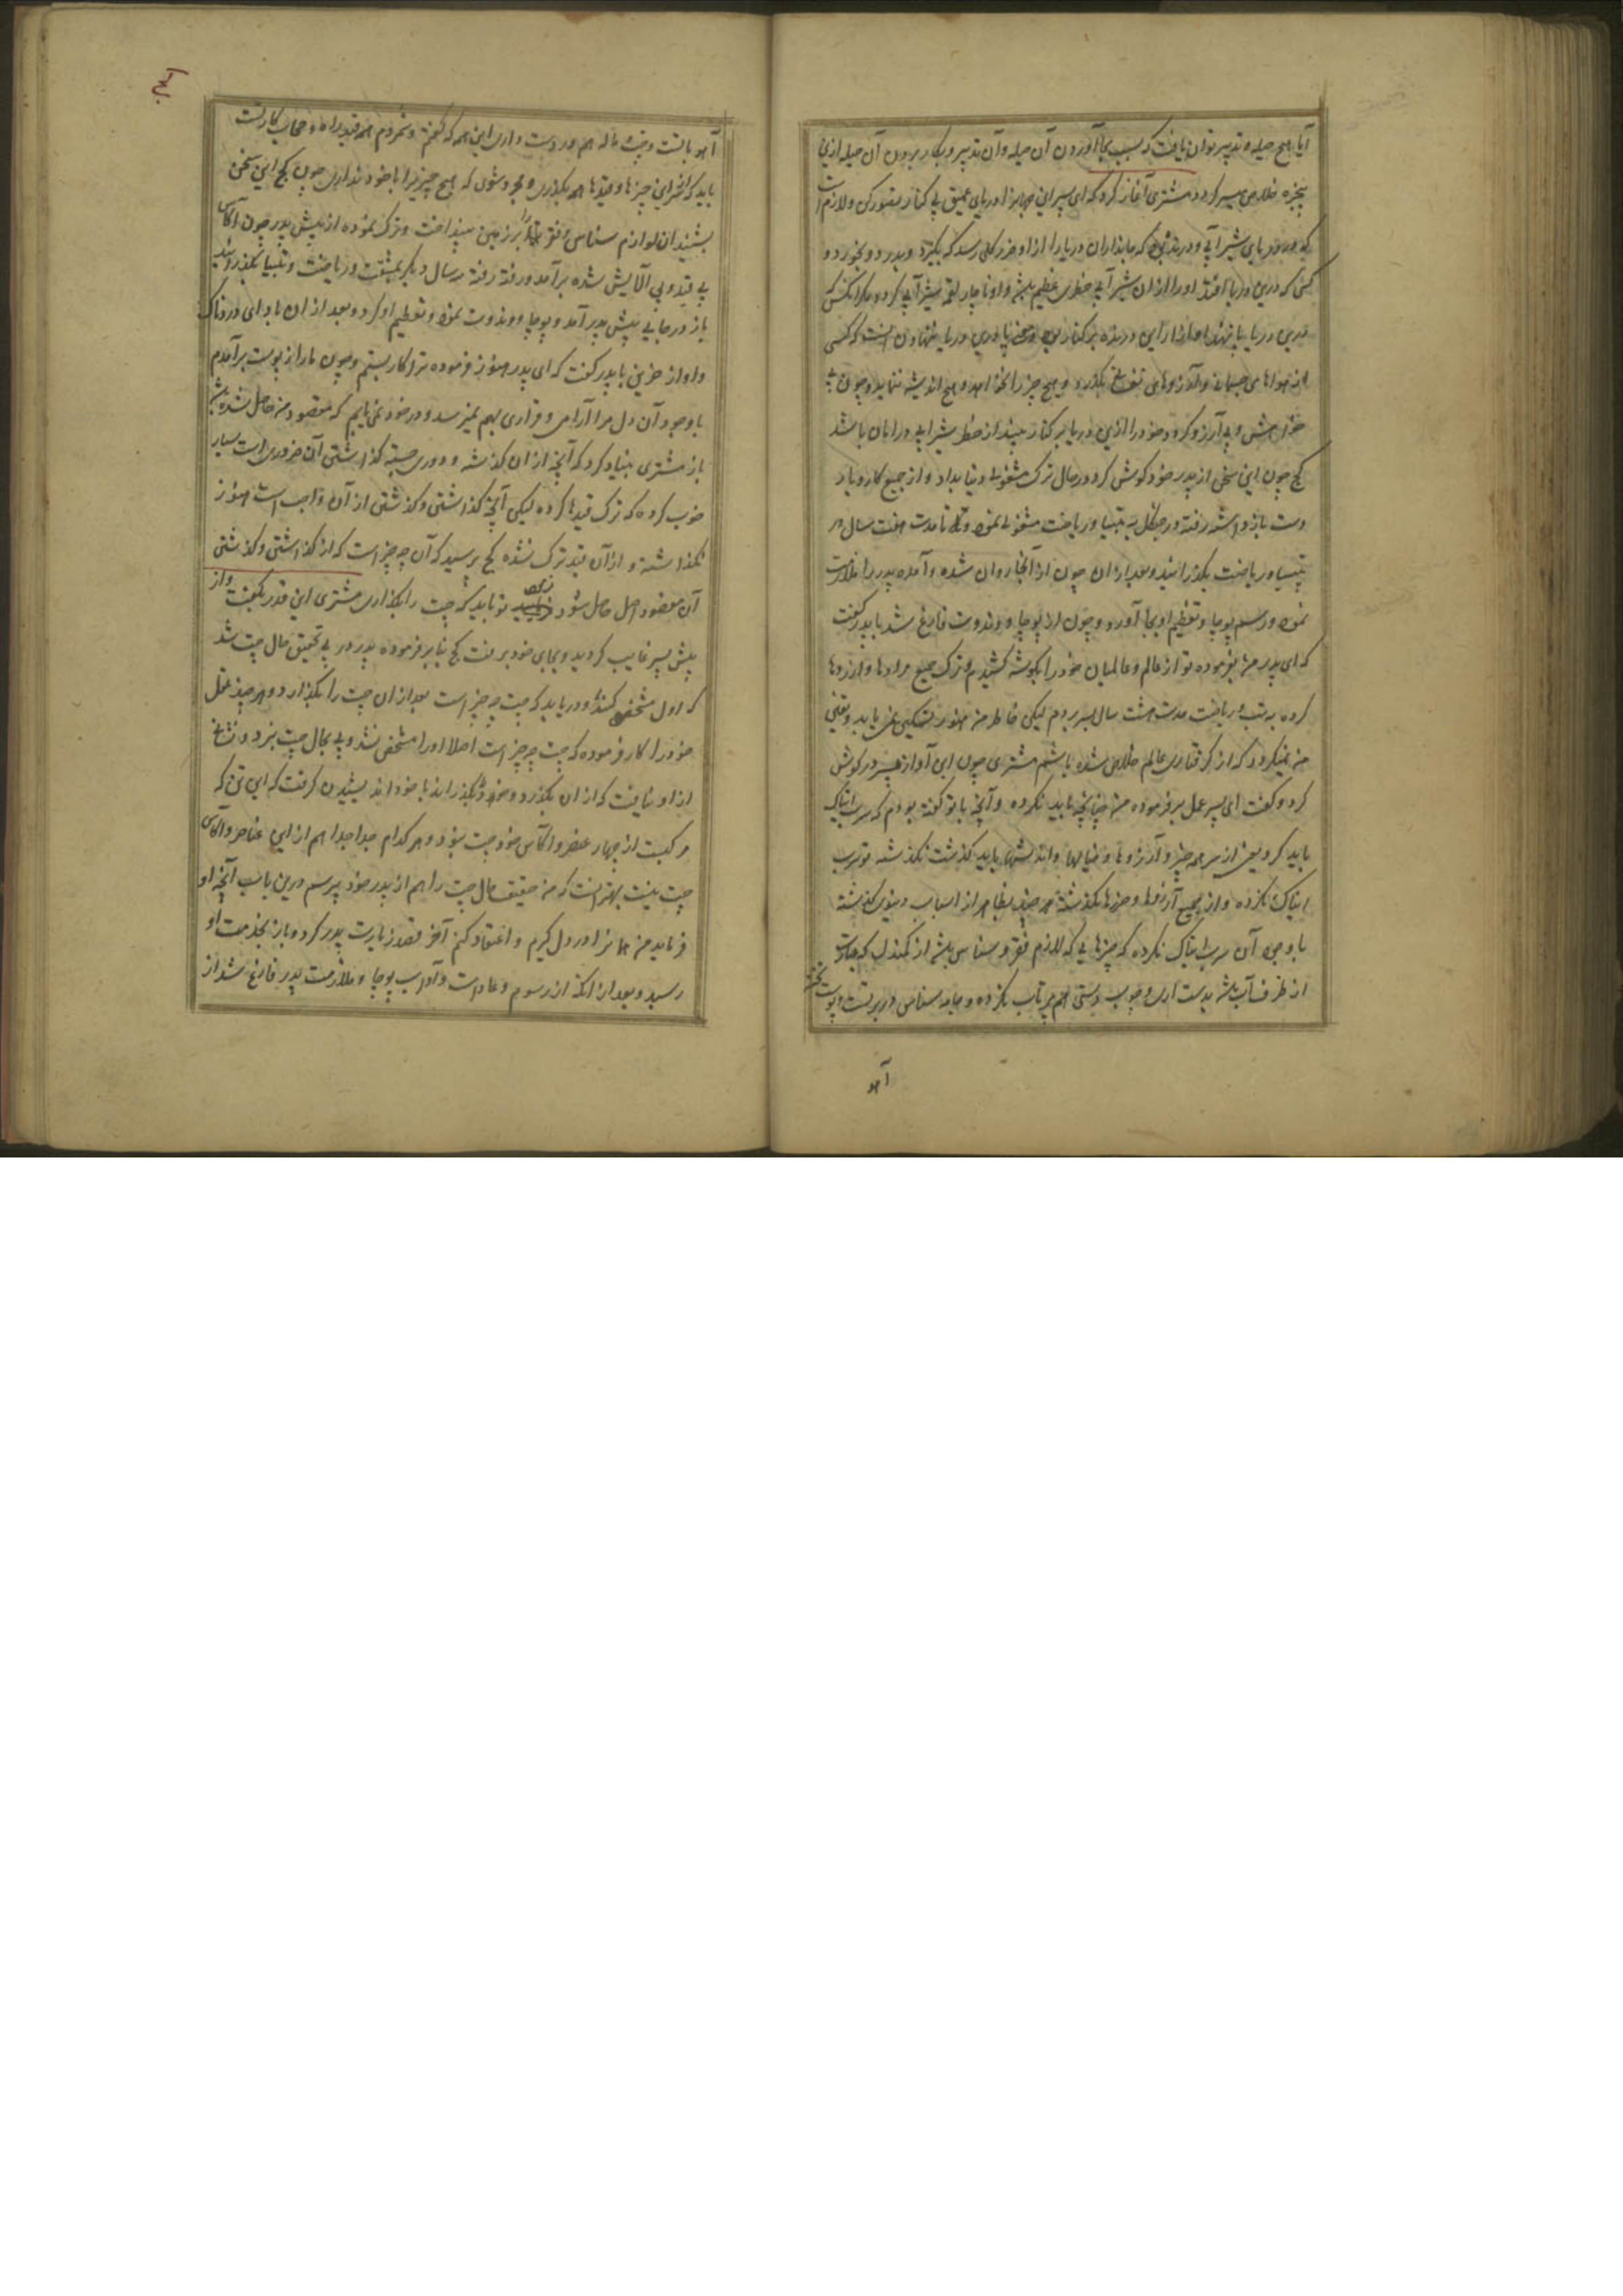 آیا هیچ حیله و تدبیر توان یافت که بسبب بجا آوردن آن حیله و آن تدبیر و بکار بردن آن حیله ازین
پنجره خلاصی میسر گردد مشتری آغاز کرد که ای پسر این جهانرا دریای عمیق بی کنار تصور کن و لازم است
که درو دریای شیر آبی و درنده که جانداران دریا را ازو ضرر کلی رسد که بگیرد و بدرد و بخورد و
کسی که درین دریا افتد او را از ان شیر آبی خطری عظیم باشد و او ناچار لقمه شیر آبی گردد مگر آنکس که
درین دریا پا ننهد و از آزار این درنده بر کنار بود و پا درین دریا ننهادن آنست که کسی
از هواهای جسمانی و آرزوهای نفسانی بگذرد و هیچ چیز را نخواهد و هیچ اندیشه ننماید و چون بی
خواهش و بی آرزو گردد خود را ازین دریا بر کنار بیند از خطر شیر آبی در امان باشد
کچ چون این سخن از پدر خود گوش کرد در حال ترک مشغولی دنیا بداد و از جمیع کاروبار
دست باز داشته رفته در جنگل به تپسیا و ریاضت مشغولی نمود و تا مدت هفت سال در
تپسیا و ریاضت بگذرانید و بعد از ان چون از آنجا روان شده و آمده پدر را ملازمت
نمود و رسم پوجا و تعظیم او بجا آورد و چون از پوجا و دندوت فارغ شد با پدر گفت
که ای پدر من بفرموده تو از عالم و عالمیان خود را بگوشه کشیدم و ترک جمیع مرادها و ارزوها
کرده به تپ و ریاضت مدت هشت سال بسر بردم لیکن خاطر من هنوز تسکین نمی یابد و یقین
من نمیگردد که از گرفتاری عالم خلاص شده باشم مشتری چون این آواز پسر در گوش
کرد و گفت ای پسر عمل بر فرموده من چنانچه باید نکرده و آنچه با تو گفته بودم که سرب اتیاگ
باید کرد یعنی از سر همه چیز و آرزوها و خیالها و اندیشها باید گذشت نگذشته تو سرب
اتیاگ نکرده و از جمیع آرزوها و چیزها نگذشته هر چند بظاهر از اسباب دنیوی گذشته
باوجود آن سرب اتیاگ نکرده که چیزهایی که لازم فقر و سناس باشد از کمندل که عبارت
از ظرف آب باشد بدست داری و چوب دستی هم پرتاب نکرده و جامه سناس در برتست و پوست تخته
آهو
آهو با تست و نیز ماله هم در دست داری این همه که گفتم و شمردم همه قید راه و حجاب کار تست
باید که اخر این چیزها و قیدها هم بگذاری و مجرد شوی که هیچ چیز را با خود نداری چون کچ این سخن
بشنید ان لوازم سناس و فقر را بر زمین بینداخت و ترک نموده از پیش پدر چون آکاس
بی قید و بی آلایش شده برآمد و رفته رفته سه سال دیگر بمشقت و ریاضت و تپسیا بگذرانید
باز در جایی پیش پدر آمد و پوجا و دندوت نموده و تعظیم او کرد و بعد از ان با دای دردناک
و اواز حزین با پدر گفت که ای پدر هنوز فرموده ترا کار بستم و چون مار از پوست برآمدم
باوجود آن دل مرا آرامی و قراری بهم نمیرسد و در خود نمی یابم که مقصود من حاصل شده باشد
باز مشتری بنیاد کرد که آنچه از ان گذشته و دوری جسته گذاشتن آن ضروری است بسیار
خوب کرده که ترک قیدها کرده لیکن آنچه گذاشتن و گذشتن از آن واجب است هنوز
نگذاشته و از آن قید ترک نشده کچ پرسید که آن چه چیز است که از گذاشتن و گذشتن
آن مقصود اصل حاصل شود فرمود تو باید که چت را بگذاری مشتری این قدر بگفت و از
پیش پسر غایب گردید و بجای خود برفت کچ بنا بر فرموده پدر در پی تحقیق حال چت شد
که اول مشخص کند و دریابد که چت چه چیز است بعد از ان چت را بگذارد و هر چند عقل
خود را کار فرموده که چت چه چیز است اصلا او را مشخص نشد و پی بحال چت نبرد و نشانی
از او نیافت که از ان بگذرد و خود را بگذراند با خود اندیشیدن گرفت که این تن که
مرکبست از چهار عنصر و اکاس خود چت نبود و هر کدام جدا جدا هم از این عناصر و آکاس
چت نیست بهتر آنست که من حقیقت حال چت را هم از پدر خود پرسم درین باب آنچه او
فرماید من همانرا در دل گیرم و اعتقاد کنم آخر قصد زیارت پدر کرد و باز بخدمت او
رسید و بعد از انکه از رسوم و عادات و آداب پوجا و ملازمت پدر فارغ شد از